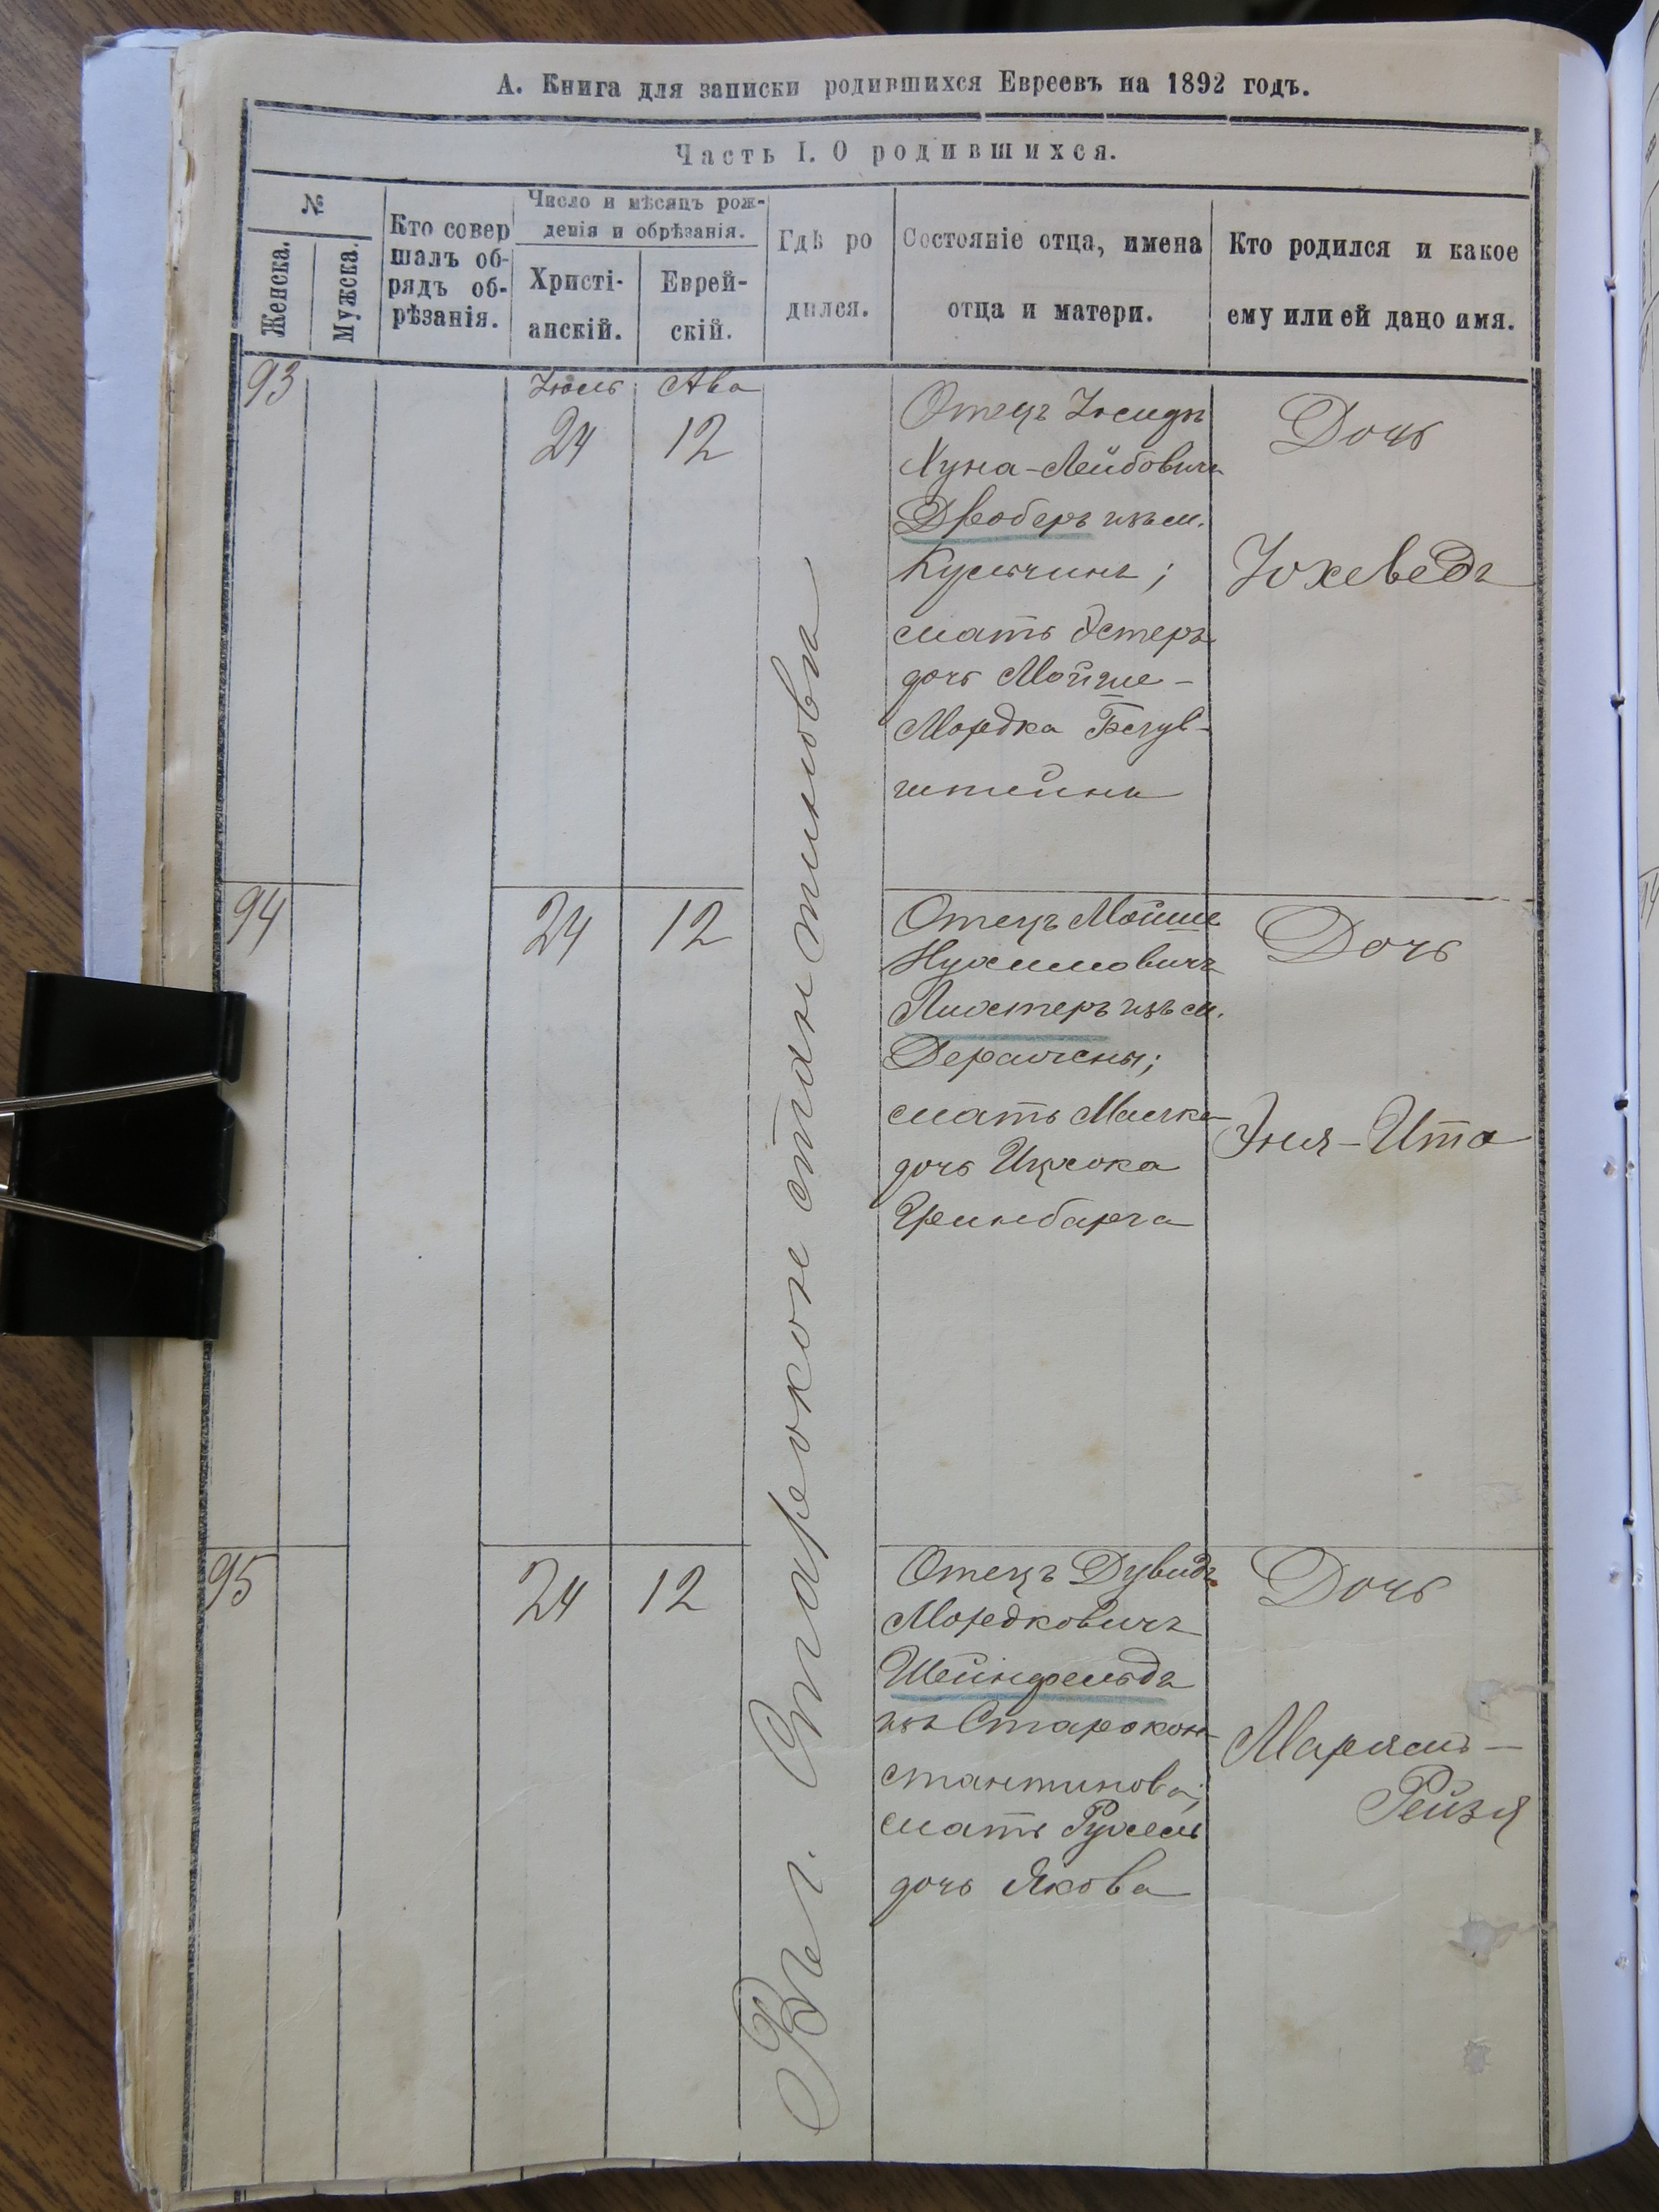 А. Книга для записки родившихся Евреевъ на 1892 годъ.
Часть I. О родившихся.
№
Женска.
Мужска.
Кто совер
шалъ об-
рядъ об-
рѣзанія.
Число и мѣсяцъ рож-
денія и обрѣзанія.
Христі-
анскій.
Еврей-
скій.
Гдѣ ро
дился.
Состояніе отца, имена
отца и матери.
Кто родился и какое
ему или ей дано имя.
93
Іюль
24
Ава
12
Отецъ Іосифъ
Хуна-Лейбовичъ
изъ м.
Кульчинъ;
мать Эстеръ
дочь Мойше-
Мордка
штейна
Дочь
Іохеведъ
94
24
12
Отецъ Мойше
Нухимовичъ
Лихтеръ изъ м.
Деражны;
мать Малка
дочь Ицхока
Гринбарга
Дочь
Эня-Ита
95
24
12
Отецъ Дувидъ
Мордковичъ
Шейнфельдъ
изъ Старокон-
стантинова;
мать Рухель
дочь Якова
Дочь
Маріамъ-
Рейзя
Въ г. Староконстантиновѣ